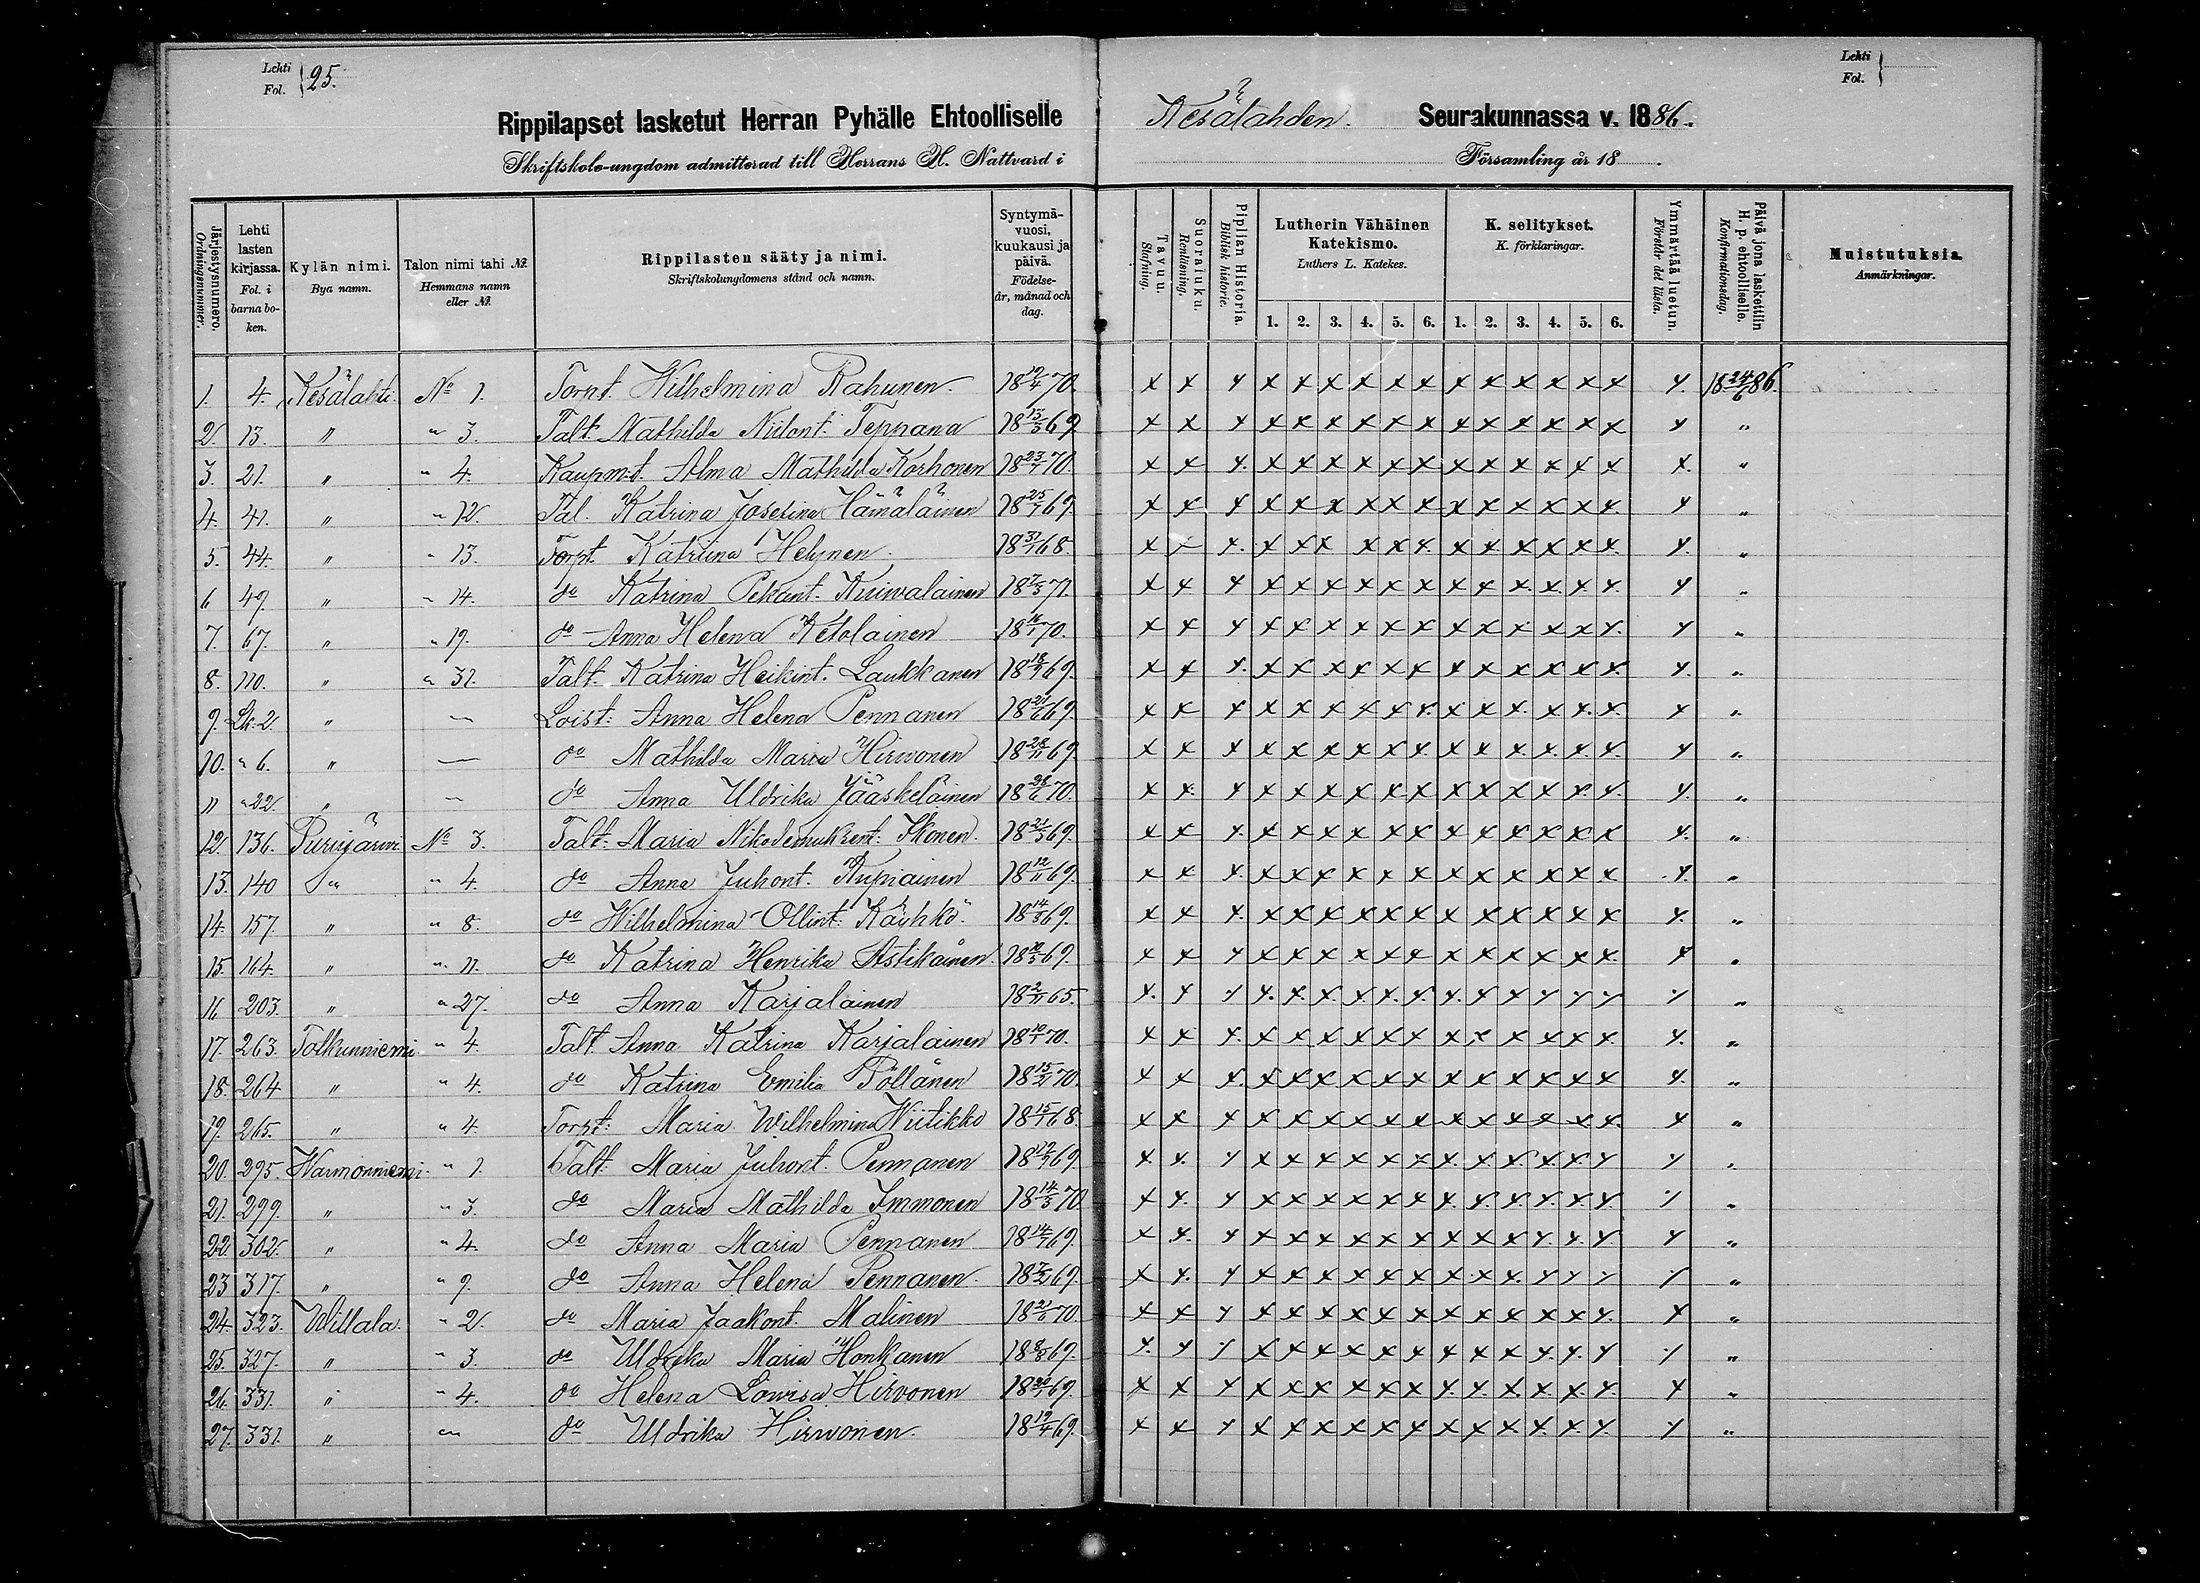 Lehti
Fol. } 25.
Rippilapset lasketut Herran Pyhälle Ehtoolliselle
Skriftskole-ungdom admitterad till Herrans H. Nattvard i
Lehti
Fol.
Kesälahden. Seurakunnassa v. 1886.
Församling år 18 .
Järjestysnumero. Ordningsnummer.
Lehti lasten kirjassa. Fol. i barnaboken.
Kylän nimi. Bya namn.
Talon nimi tahi №. Hemmans namn eller №.
Rippilasten sääty ja nimi. Skriftskolungdomens stånd och namn.
Syntymävuosi, kuukausi ja päivä. Födelse-år, månad och dag.
Tavuu. Stafning.
Suoraluku. Renläsning.
Piplian Historia. Biblisk historie.
Lutherin Vähäinen Katekismo. Luthers L. Katekes.
1. 2. 3. 4. 5. 6.
K. selitykset. K. förklaringar.
1. 2. 3. 4. 5. 6.
Ymmärtää luetun. Förstår det lästa.
Päivä jona laskettiin H. p. ehtoolliselle. Konfirmationsdag.
Muistutuksia. Anmärkningar.
1. 4. Kesälahti. No 1. Torpt. Wilhelmina Rahunen. 18 19/4 70. x x x x x x x x x x x x x x x x 18 24/6 86.
2. 13. " " 3. Talt. Mathilda Niilont. Teppana 18 13/3 69 x x x x x x x x x x x x x x x x "
3. 21. " " 4. Kaupm:t. Alma Mathilda Korhonen 18 23/1 70. x x x x x x x x x x x x x x x x "
4. 41. " " 12. Tal. Katrina Josefina Hämäläinen 18 25/1 69. x x x x x x x x x x x x x x x x "
5. 44. " " 13. Torpt. Katriina Helynen. 18 31/1 68. x x x x x x x x x x x x x x x x "
6 49. " " 14. do Katrina Pekant. Kuivalainen 18 2/3 71. x x x x x x x x x x x x x x x x "
7. 67. " " 19. do Anna Helena Ketolainen 18 16/1 70. x x x x x x x x x x x x x x x x "
8. 110. " " 31. Talt. Katrina Heikint. Laukkanen 18 18/9 69. x x x x x x x x x x x x x x x x "
9. Lk. 2. " — Loist: Anna Helena Pennanen 18 21/6 69. x x x x x x x x x x x x x x x x "
10. " 6. " — do Mathilda Maria Hirvonen 18 28/11 69. x x x x x x x x x x x x x x x x "
11 " 22. " — do Anna Uldrika Jääskeläinen 18 28/6 70. x x x x x x x x x x x x x x x x "
12. 136. Purujärwi No 3. Talt: Maria Nikodemuksent. Ikonen. 18 21/3 69. x x x x x x x x x x x x x x x x "
13. 140 " " 4. do Anna Juhont. Kupiainen 18 12/11 69. x x x x x x x x x x x x x x x x "
14. 157. " " 8. do Wilhelmina Ollint. Käyhkö. 18 14/8 69. x x x x x x x x x x x x x x x x "
15. 164. " " 11. do Katrina Henrika Astikainen 18 10/3 69. x x x x x x x x x x x x x x x x "
16 203. " " 27. do Anna Karjalainen 18 2/11 65. x x x x x x x x x x x x x x x x "
17. 263. Totkunniemi. " 4. Talt. Anna Katrina Karjalainen 18 10/1 70. x x x x x x x x x x x x x x x x "
18. 264 " " 4. do Katrina Emilia Pöllänen 18 15/2 70. x x x x x x x x x x x x x x x x "
19. 265. " " 4. Torpt: Maria Wilhelmina Wiitikko 18 15/1 68. x x x x x x x x x x x x x x x x "
20. 295. Warmonniemi. " 1. Talt. Maria Juhont. Pennanen 18 12/9 69. x x x x x x x x x x x x x x x x "
21. 299. " " 3. do Maria Mathilda Immonen 18 14/3 70 x x x x x x x x x x x x x x x x "
22 302. " " 4. do Anna Maria Pennanen 18 14/1 69. x x x x x x x x x x x x x x x x "
23 317. " " 9. do Anna Helena Pennanen. 18 7/2 69. x x x x x x x x x x x x x x x x "
24. 323. Willala. " 2. do Maria Jaakont. Malinen 18 21/6 70. x x x x x x x x x x x x x x x x "
25. 327. " " 3. do Uldrika Maria Honkanen 18 8/8 69. x x x x x x x x x x x x x x x x "
26. 331. " " 4. do Helena Lowisa Hirvonen 18 20/1 69. x x x x x x x x x x x x x x x x "
27. 331. " " do Uldrika Hirwonen. 18 19/4 69. x x x x x x x x x x x x x x x x "